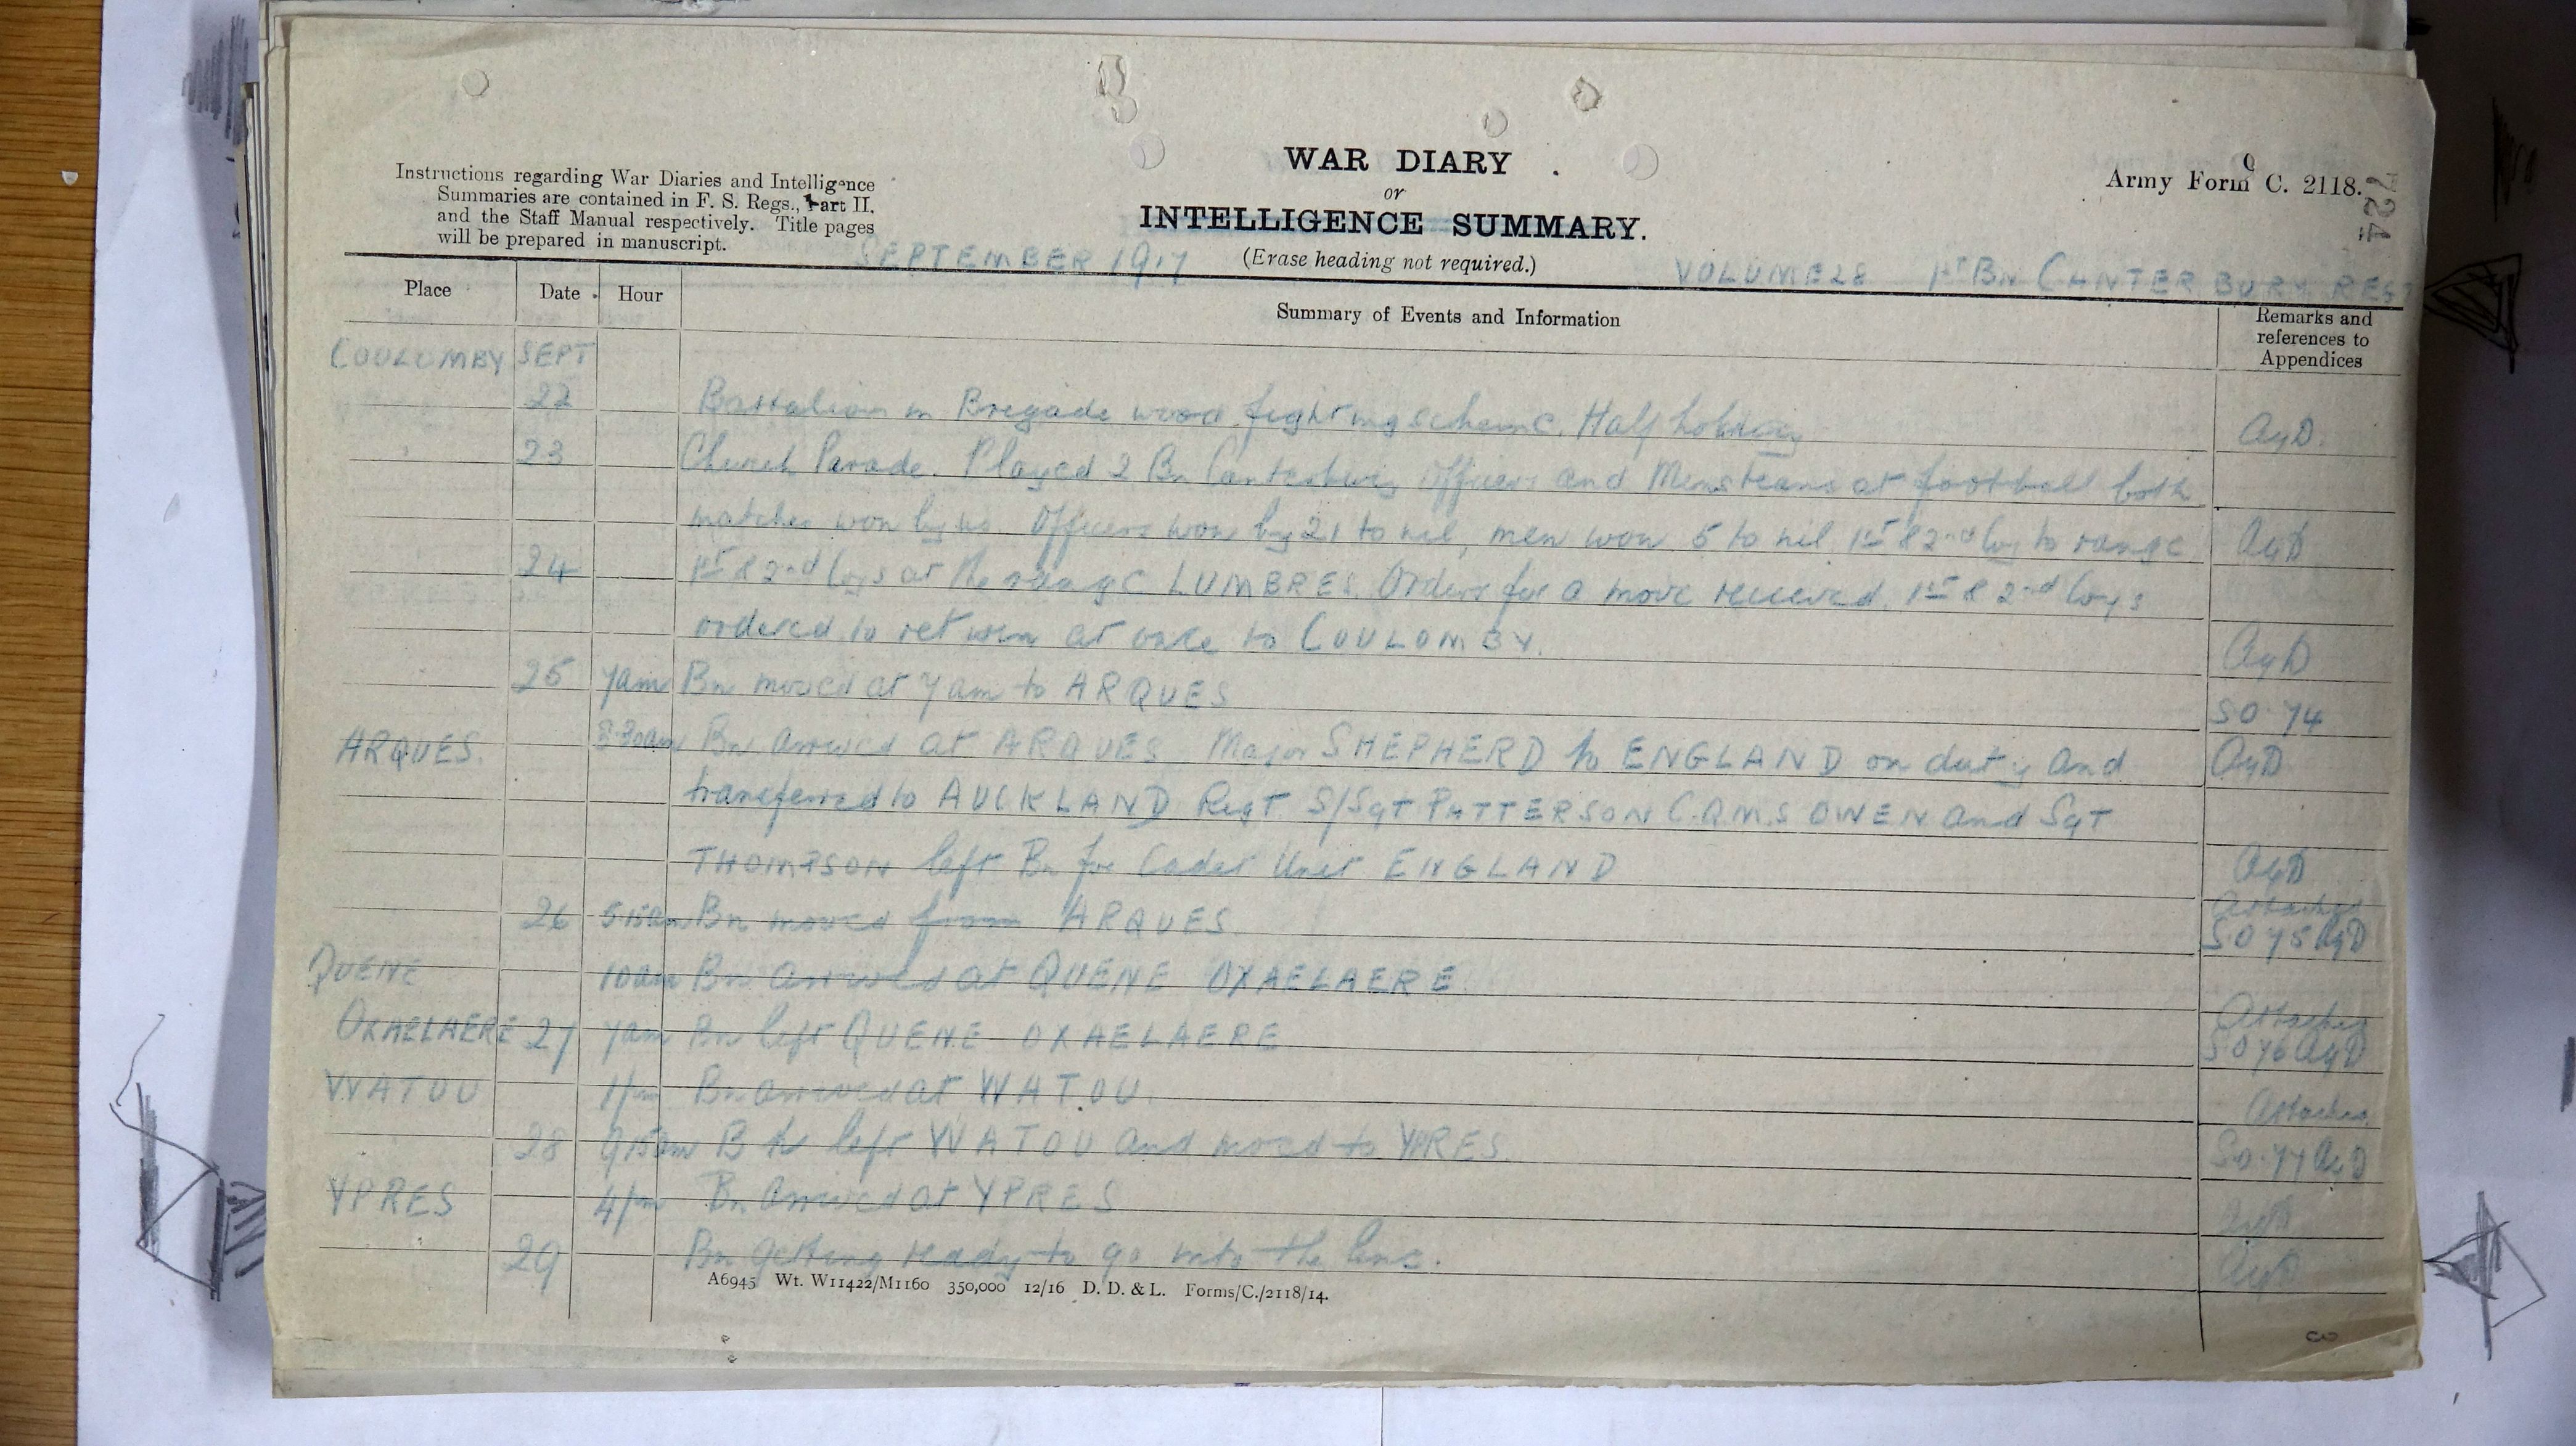 WAR DIARY
or
INTELLIGENCE SUMMARY.
(Erase heading not required.)
Instructions regarding War Diaries and Intelligence
Summaries are contained in F. S. Regs., Part II.
and the Staff Manual respectively. Title pages
will be prepared in manuscript.
Army Form C. 2118.
724
SEPTEMBER 1917 VOLUME 28 1st BN CANTERBURY REGT
Place Date Hour Summary of Events and Information Remarks and
references to
Appendices
COULOMBY SEPT
22 Battalion in Brigade wood fighting scheme. Half holiday AgD.
23 Church Parade. Played 2 Bn Canterbury Officers and Mens teams at football both
matches won by us. Officers won by 21 to nil, men won 5 to nil 1st & 2nd Coy to range AgD
24 1st & 2nd Coys at the range LUMBRES. Orders for a move received. 1st & 2nd Coys
ordered to return at once to COULOMBY. AgD
25 7am Bn moved at 7am to ARQUES SO. 74
ARQUES. 8.30am Bn arrived at ARQUES Major SHEPHERD to ENGLAND on duty and AgD
transferred to AUCKLAND Regt. S/Sgt PATTERSON C.Q.M.S OWEN and Sgt
THOMPSON left Bn for Cadet Unit ENGLAND AgD
26 5.15am Bn moved from ARQUES. Attached
SO 75 AgD
QUENE 10am Bn arrived at QUENE OXAELAERE
OXAELAERE 27 7am Bn left QUENE OXAELAERE Attached
SO 76 AgD
WATOU 1pm Bn arrived at WATOU. Attached
28 9.15am Bn left WATOU and moved to YPRES. SO. 77 AgD
YPRES 4pm Bn arrived at YPRES AgD
29 Bn getting ready to go into the line. AgD
A6945 Wt. W11422/M1160 350,000 12/16 D. D. & L. Forms/C./2118/14.
3